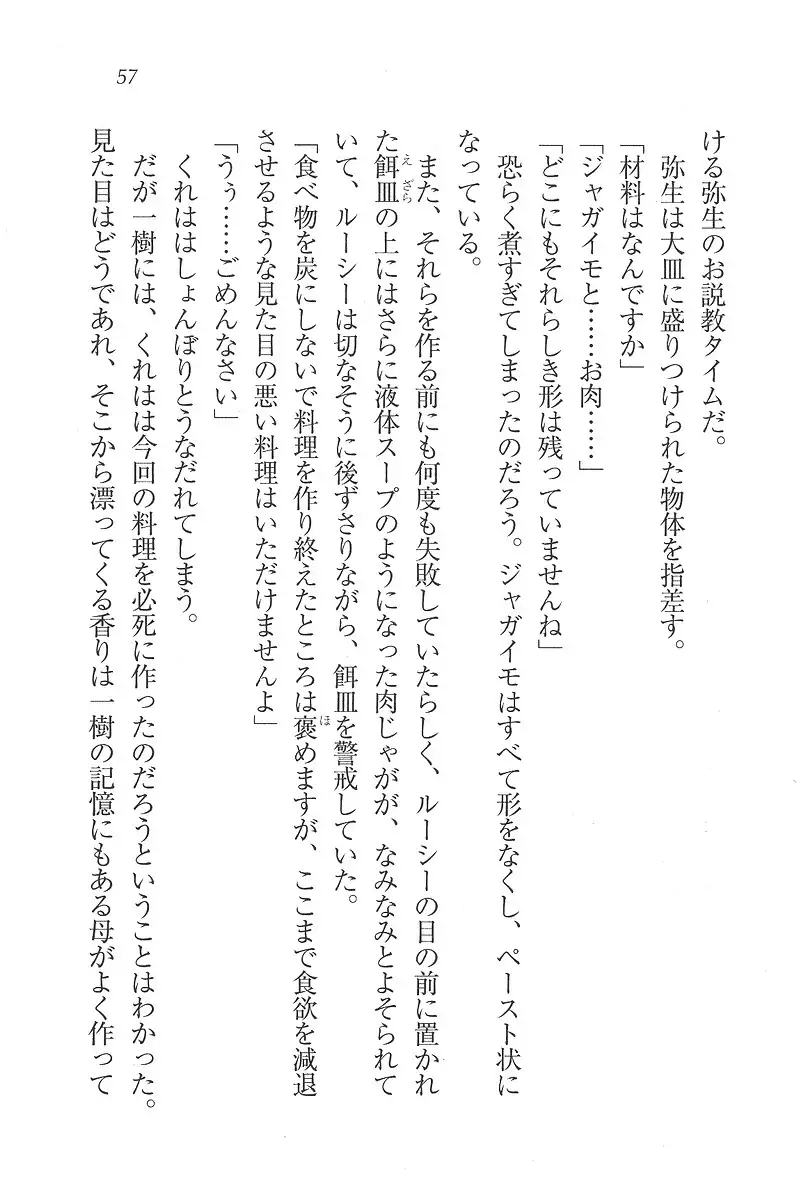 57
ける弥生のお説教タイムだ。
弥生は大皿に盛りつけられた物体を指差す。
「材料はなんですか」
「ジャガイモと……お肉……」
「どこにもそれらしき形は残っていませんね」
恐らく煮すぎてしまったのだろう。ジャガイモはすべて形をなくし、ペースト状に
なっている。
また、それらを作る前にも何度も失敗していたらしく、ルーシーの目の前に置かれ
た餌皿の上にはさらに液体スープのようになった肉じゃがが、なみなみとよそられて
えざら
いて、ルーシーは切なそうに後ずさりながら、餌皿を警戒していた。
「食べ物を炭にしないで料理を作り終えたところは褒めますが、ここまで食欲を減退
ほ
させるような見た目の悪い料理はいただけませんよ」
「うぅ……ごめんなさい」
くれははしょんぼりとうなだれてしまう。
だが一樹には、くれはは今回の料理を必死に作ったのだろうということはわかった。
見た目はどうであれ、そこから漂ってくる香りは一樹の記憶にもある母がよく作って